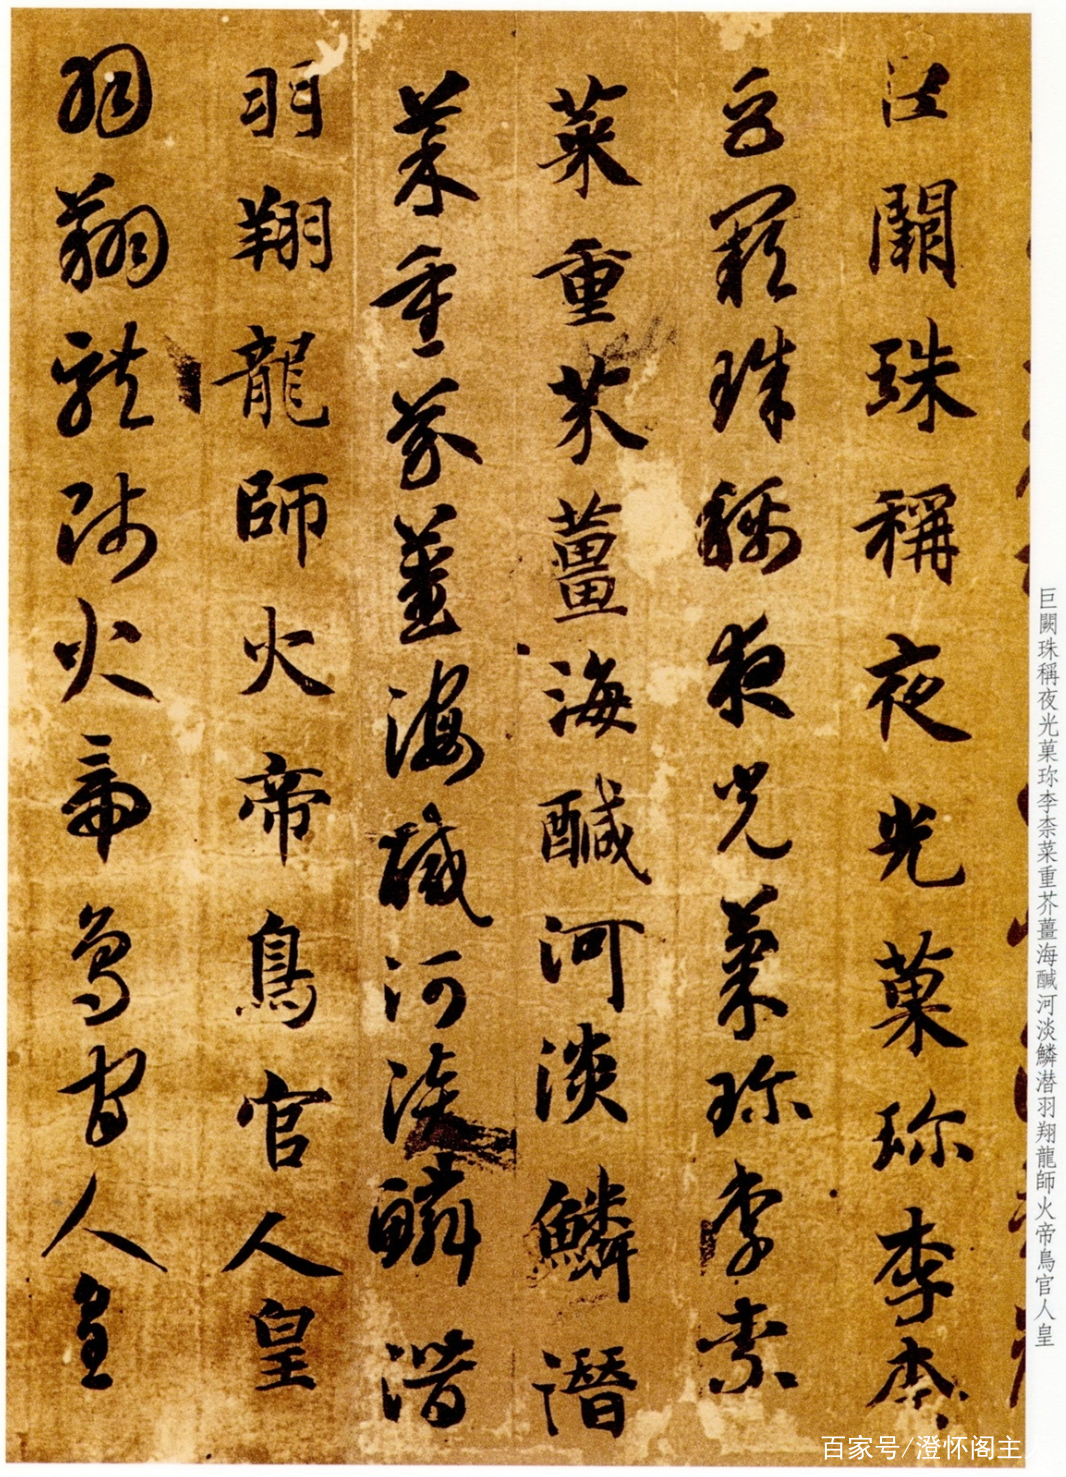 巨闕珠稱夜光菓珎李柰菜重芥薑海醎河淡鱗潜羽翔龍師火帝鳥官人皇
巨闕珠稱夜光菓珎李柰
巨闕珠稱夜光菓珎李柰
菜重芥薑海醎河淡鱗潛
菜重芥薑海醎河淡鱗潛
羽翔龍師火帝鳥官人皇
羽翔龍師火帝鳥官人皇
百家号/澄怀阁主